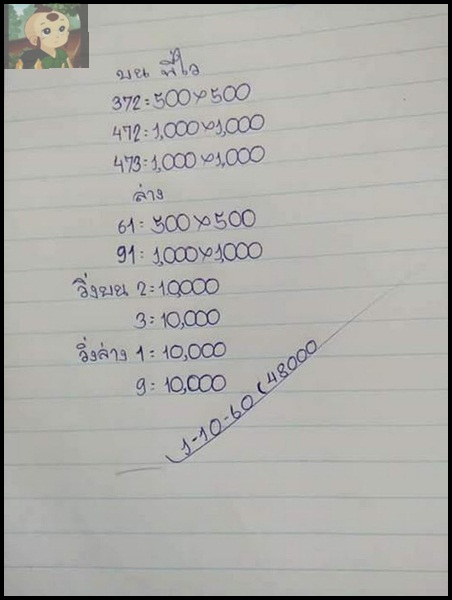 บน พี่ไว
372=500×500
472=1,000×1,000
473=1,000×1,000
ล่าง
61=500×500
91=1,000×1000
วิ่งบน 2=10,000
3=10,000
วิ่งล่าง 1=10,000
9=10,000
1-10-60 (48000